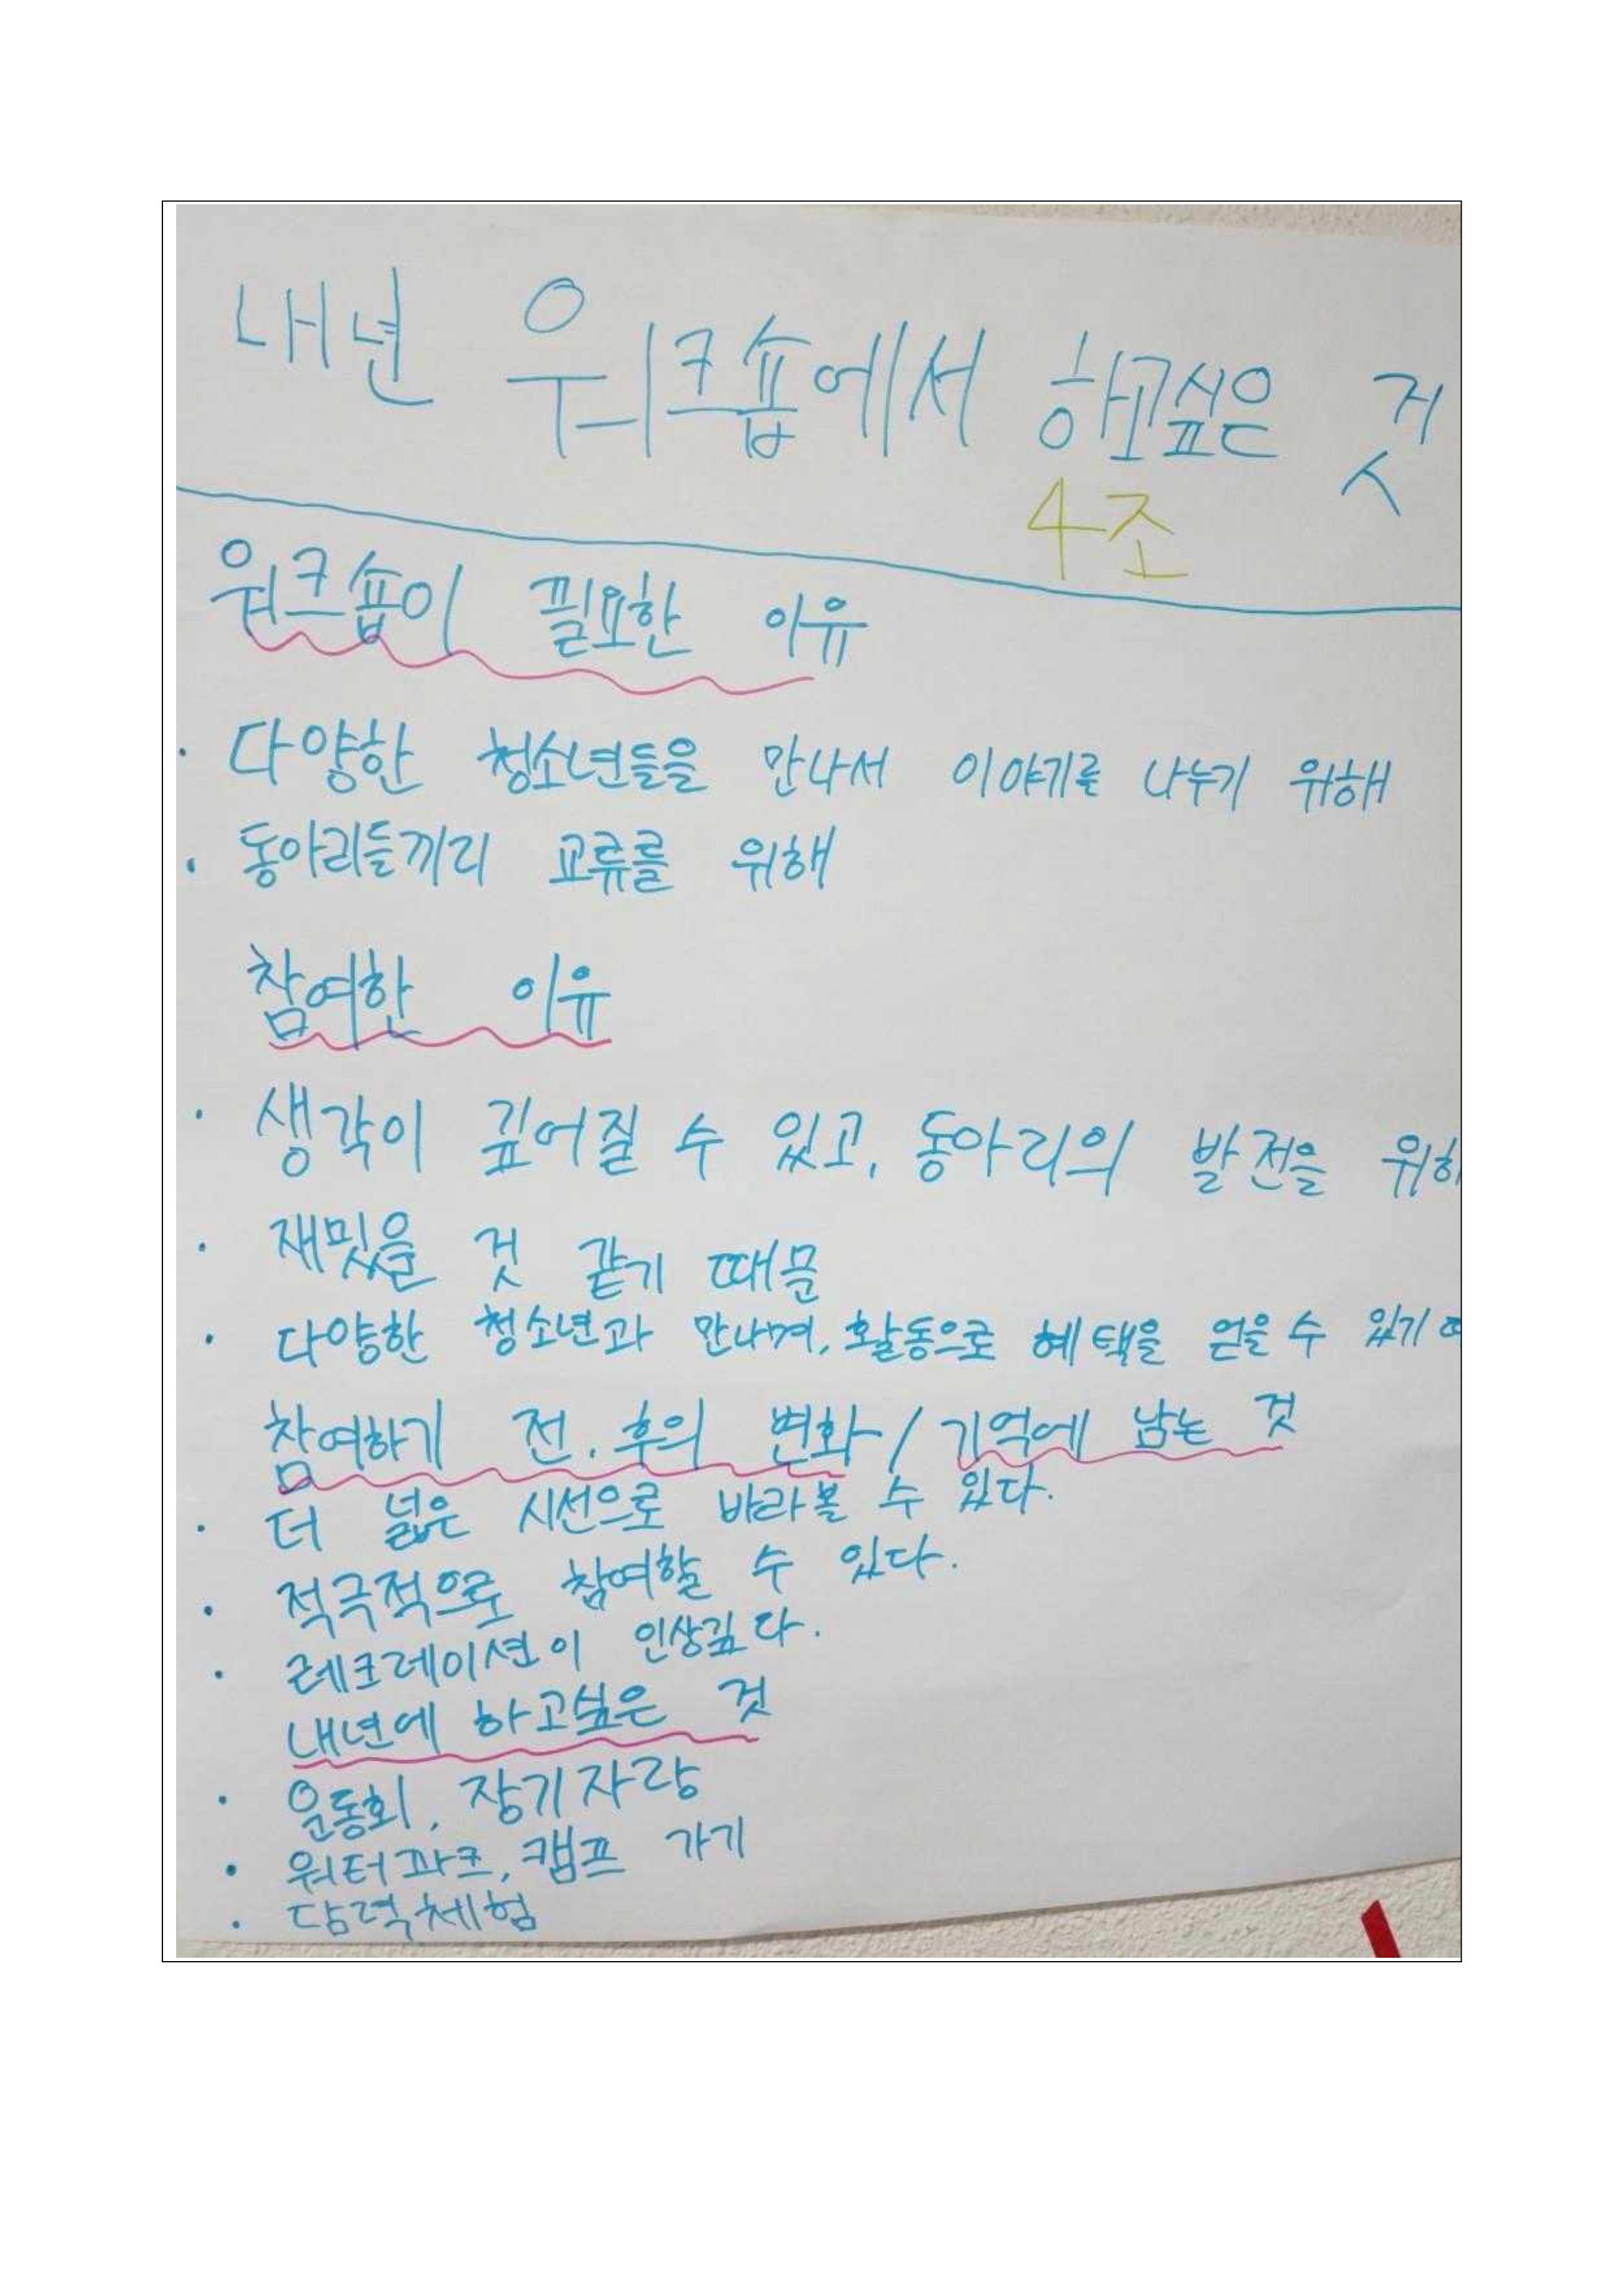 내년 워크숍에서 하고싶은 것
4조
워크숍이 필요한 이유
· 다양한 청소년들을 만나서 이야기를 나누기 위해
· 동아리들끼리 교류를 위해
참여한 이유
· 생각이 깊어질 수 있고, 동아리의 발전을 위해
· 재밌을 것 같기 때문
· 다양한 청소년과 만나며, 활동으로 혜택을 얻을 수 있기
참여하기 전.후의 변화/기억에 남는 것
· 더 넓은 시선으로 바라볼 수 있다.
· 적극적으로 참여할 수 있다.
· 레크레이션이 인상깊다.
내년에 하고싶은 것
· 운동회, 장기자랑
· 워터파크, 캠프 가기
· 담력체험